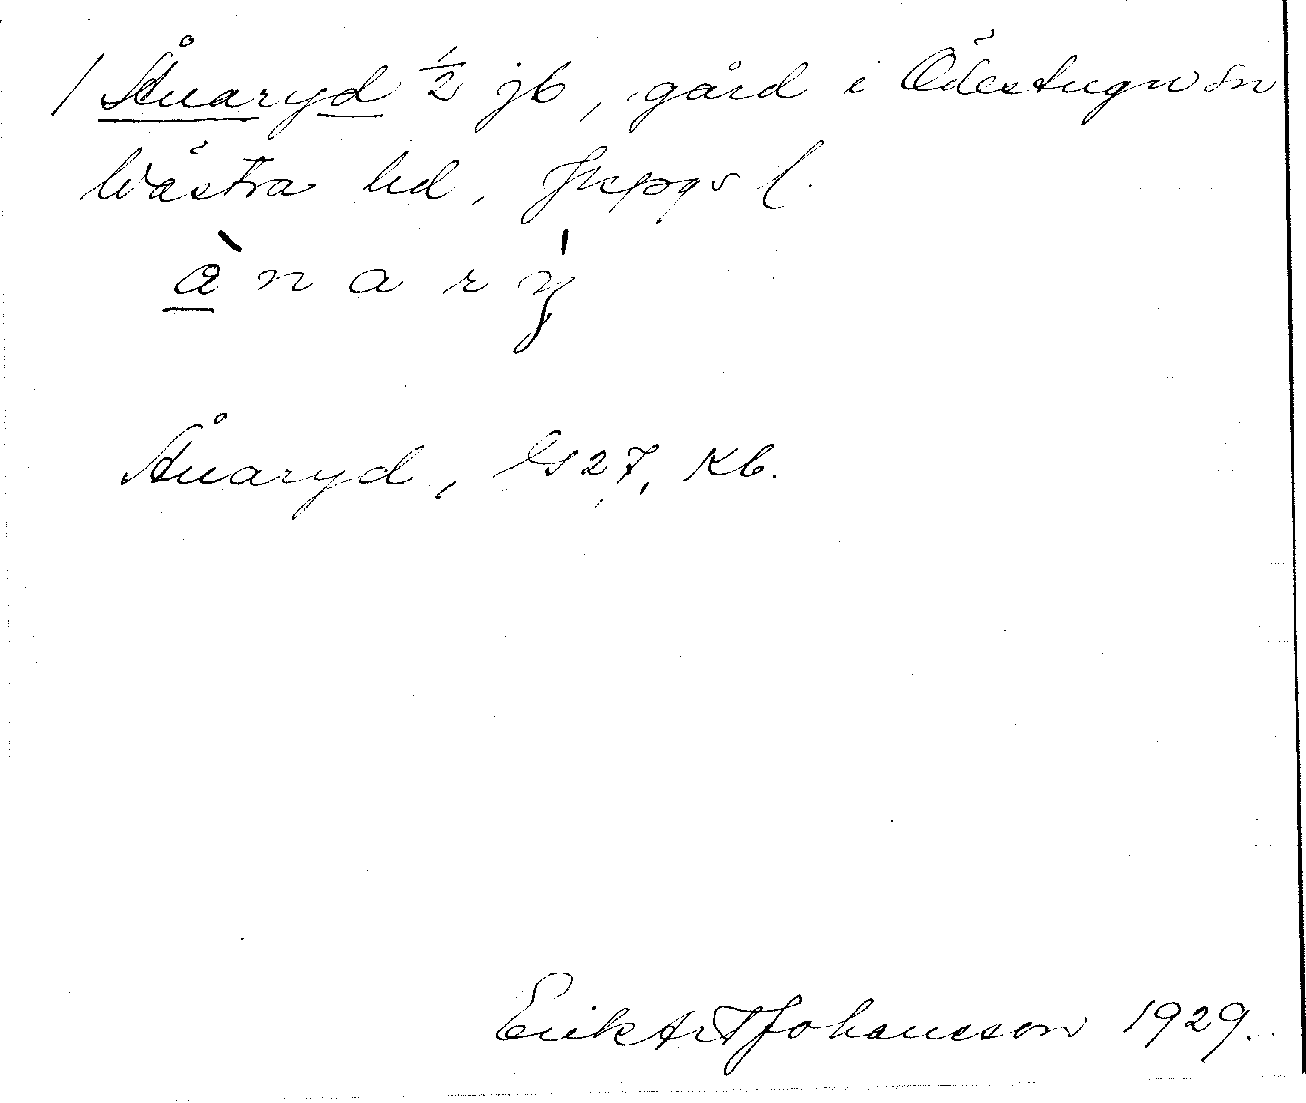 / Ånaryd ½ jb, gård i Ödestugu sn
Västra hd, Jnkpgs l.
å̀ n a r ý
Ånaryd, Gs 27, Kb.
Erik Art Johansson 1929.